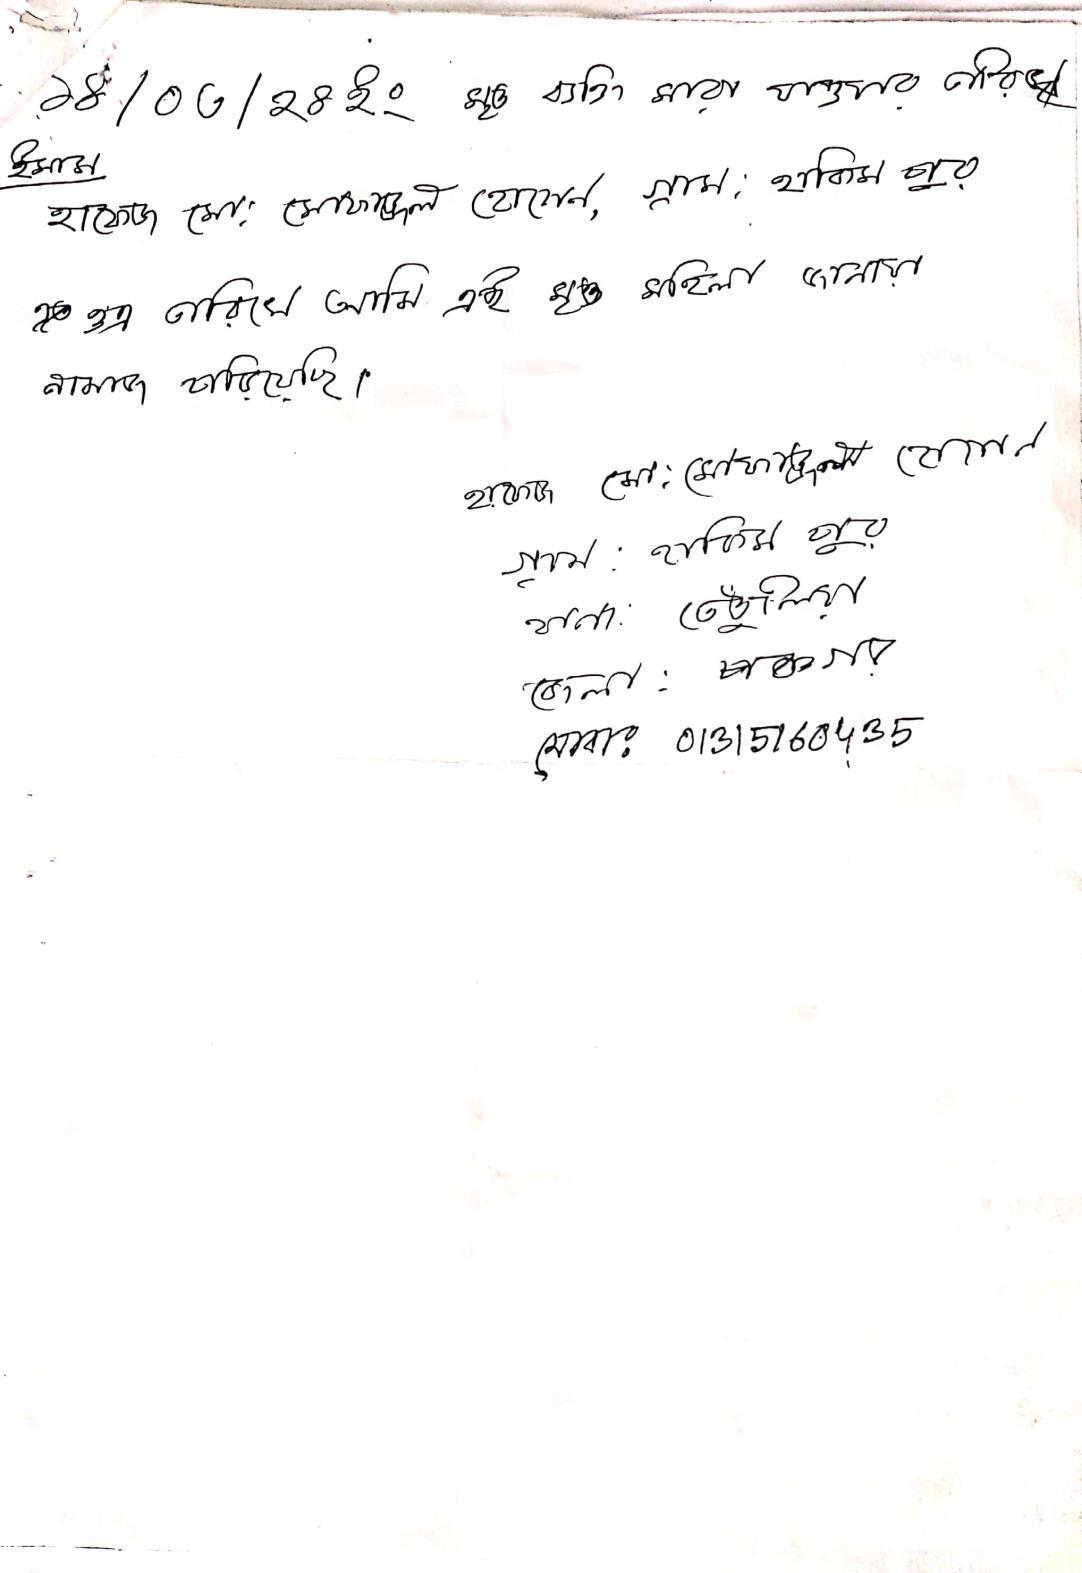 ১৪/০৩/২৪ ইং মৃত ব্যক্তি মারা যাওয়ার তারিখ
ইমাম
হাফেজ মো: মোফাজ্জল হোসেন, গ্রাম: হাকিম পুর
অত্র তারিখে আমি এই মৃত মহিলা জানাযা
নামাজ পরিয়েছি।
হাফেজ মো: মোফাজ্জল হোসেন
গ্রাম: হাকিম পুর
থানা: তেঁতুলিয়া
জেলা: পঞ্চগড়
মোবা: 01315160435